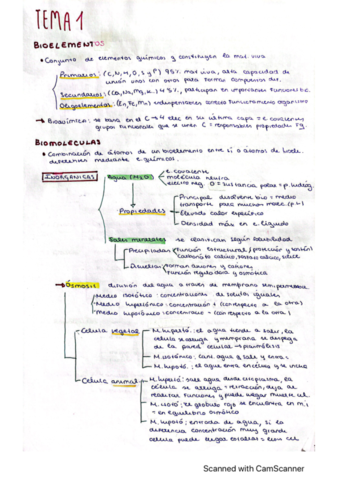 TEMA 1
BIOELEMENTOS
• Conjunto de elementos químicos y constituyen la mat. viva
Primarios: (C,N,H,O,S y P) 95% mat viva, alta capacidad de
unión unos con otros para formar
Secundarios: (Ca,Na,Mg,K..) 4'5%, participan en importantes funciones
Oligoelementos: (Zn,Fe,Mn) indispensables correcto funcionamiento organismo
Bioquímica: se basa en el C → 4 elec en su última capa = e. covalentes
grupos funcionales que se unen C = responsables propiedades
BIOMOLÉCULAS
• Combinación de átomos de un bioelemento entre sí o átomos de
diferentes mediante e. químicos.
INORGÁNICAS
Agua (H₂O)
e. covalente
molécula neutra
electro neg. O = sustancia polar = p. hidróg.
Propiedades
Principal disolvente bio = medio
transporte para muchas molec.
Elevado calor específico
Densidad más en e. líquido
Sales minerales → se clasifican según solubilidad
Precipitadas (función estructural / protección y sostén)
carbonato cálcico,
Disueltas
forman aniones y cationes
función reguladora y osmótica
Ósmosis: difusión del agua a traves de membrana semipermeable
Medio isotónico: concentraciones de solutos iguales
Medio hipertónico: concentracion + (con respecto a la otra)
Medio hipotónico: concentracion - (con respecto a la otra)
Célula vegetal
M. hipertó: el agua tiende a salir, la
célula se arruga y membrana se despega
de la pared celular → plasmólisis
M. isotónico: cant. agua q sale y entra =
M. hipotó: el agua entra en exceso y se hincha
Célula animal
M. hipertó: sale agua desde citoplasma, la
célula se arruga = retracción, deja de
realizar funciones y puede llegar muerte cel.
M. isotó: el glóbulo rojo se encuentra en m.i
= en equilibrio osmótico
M. hipotó: entrada de agua, si la
diferencia concentración muy grande
célula puede llegar estallar =
Scanned with CamScanner